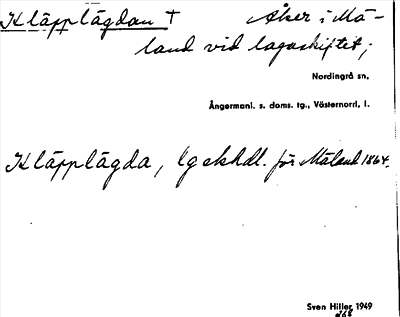 Kläpplägdan † Åker i Må-
land vid lagaskiftet;
Nordingrå sn,
Ångermanl. s. doms. tg., Västernorrl. l.
Kläpplägda, lgskhdl. för Måland 1864.
Sven Hiller 1949
268